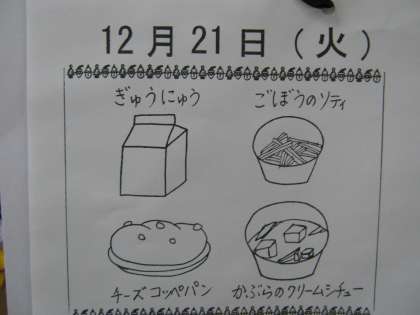 12月21日(火)
ぎゅうにゅう
ごぼうのソティ
チーズコッペパン
かぶらのクリームシチュー